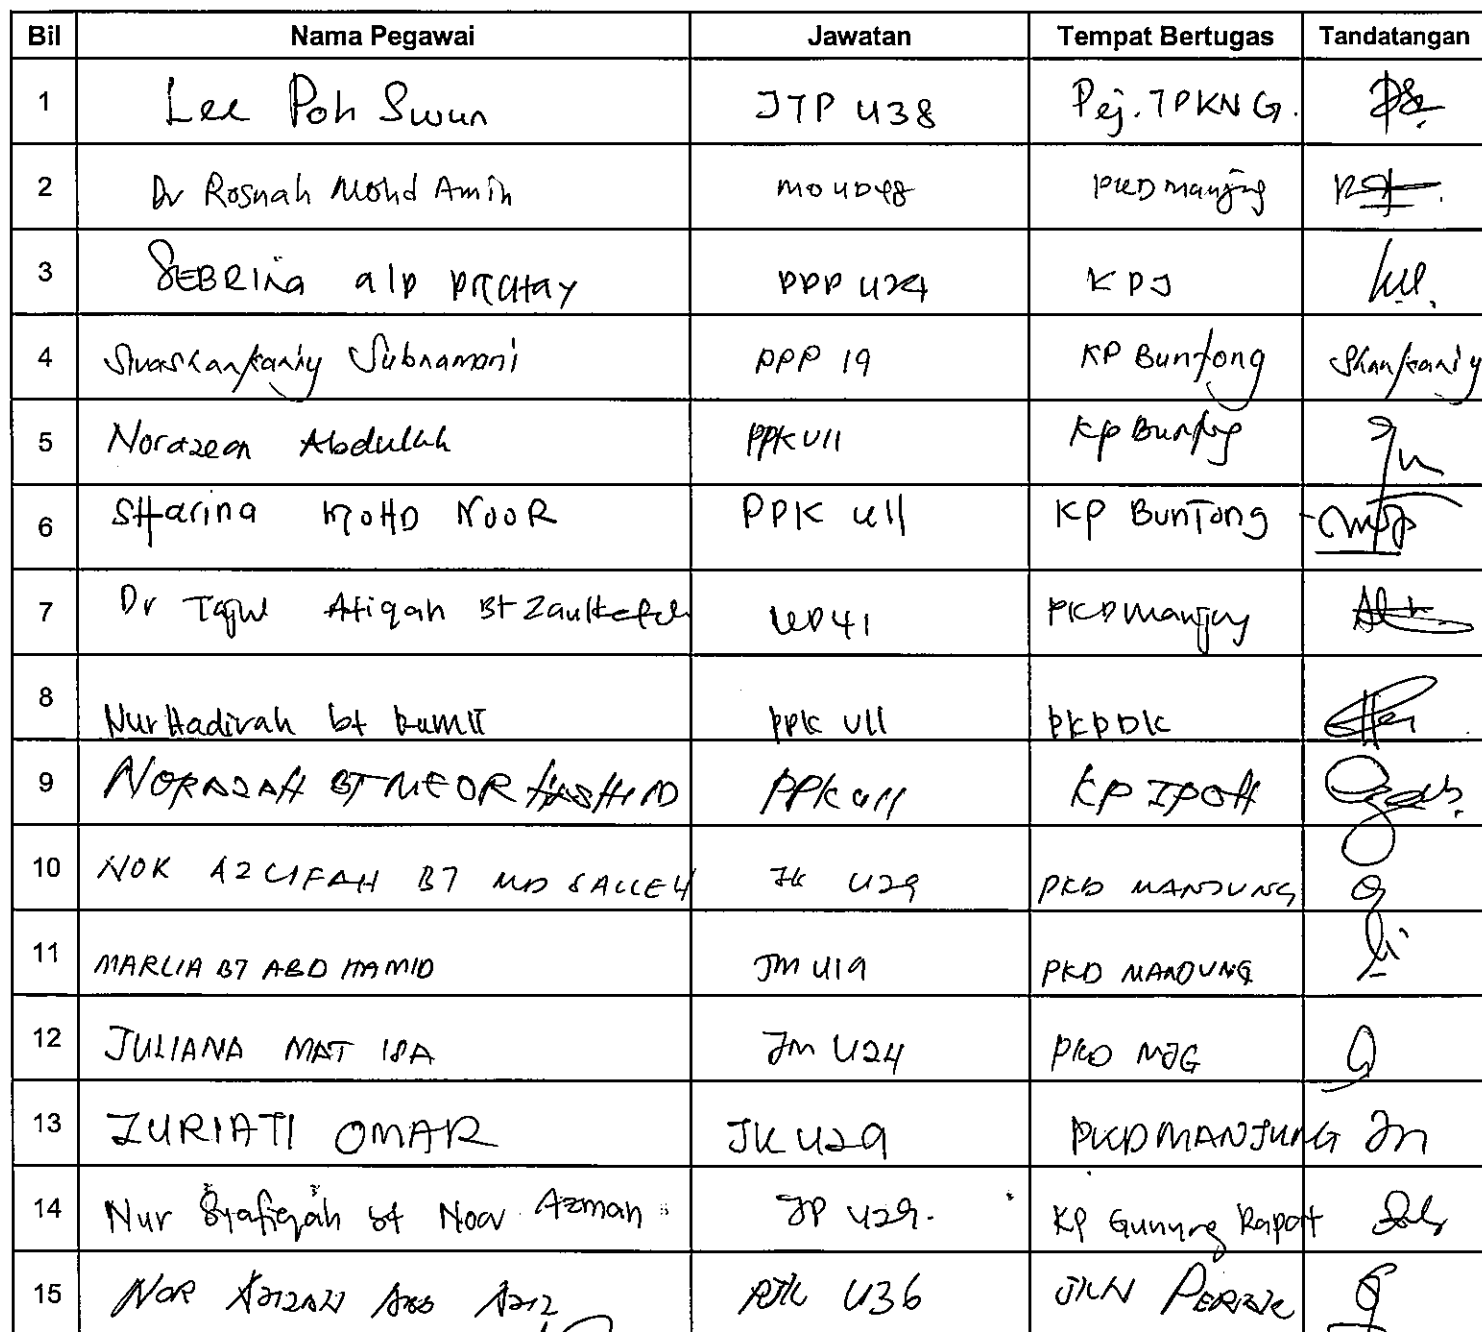 Bil Nama Pegawai Jawatan Tempat Bertugas Tandatangan
1 Lee Poh Swun JTP U38 Pej. TPKN G.
2 Dr Rosnah Mohd Amin MO UD48 PKD Manjung
3 SEBRINA a/p PITCHAY PPP U24 KPJ
4 Sivashankariy Subramani PPP 19 KP Buntong Shankariy
5 Norazean Abdullah PPK U11 KP Buntong
6 SHarina MOHD NOOR PPK U11 KP BunTong
7 Dr Tajul Atiqah Bt UD41 PKD Manjung
8 Nur Hadirah bt PPK U11 PKPDK
9 NORAZAH BT MEOR HASHIM PPK U11 KP IPOH
10 NOR AZLIFAH BT MD SALLEH JK U29 PKD MANJUNG
11 MARLIA BT ABD HAMID JM U19 PKD MANJUNG
12 JULIANA MAT ISA JM U24 PKD MJG
13 ZURIATI OMAR JK U29 PKD MANJUNG
14 Nur Syafiqah bt Noor Azman JP U29. KP Gunung Rapat
15 NOR AZIZAH ABD AZIZ U36 JKN PERAK